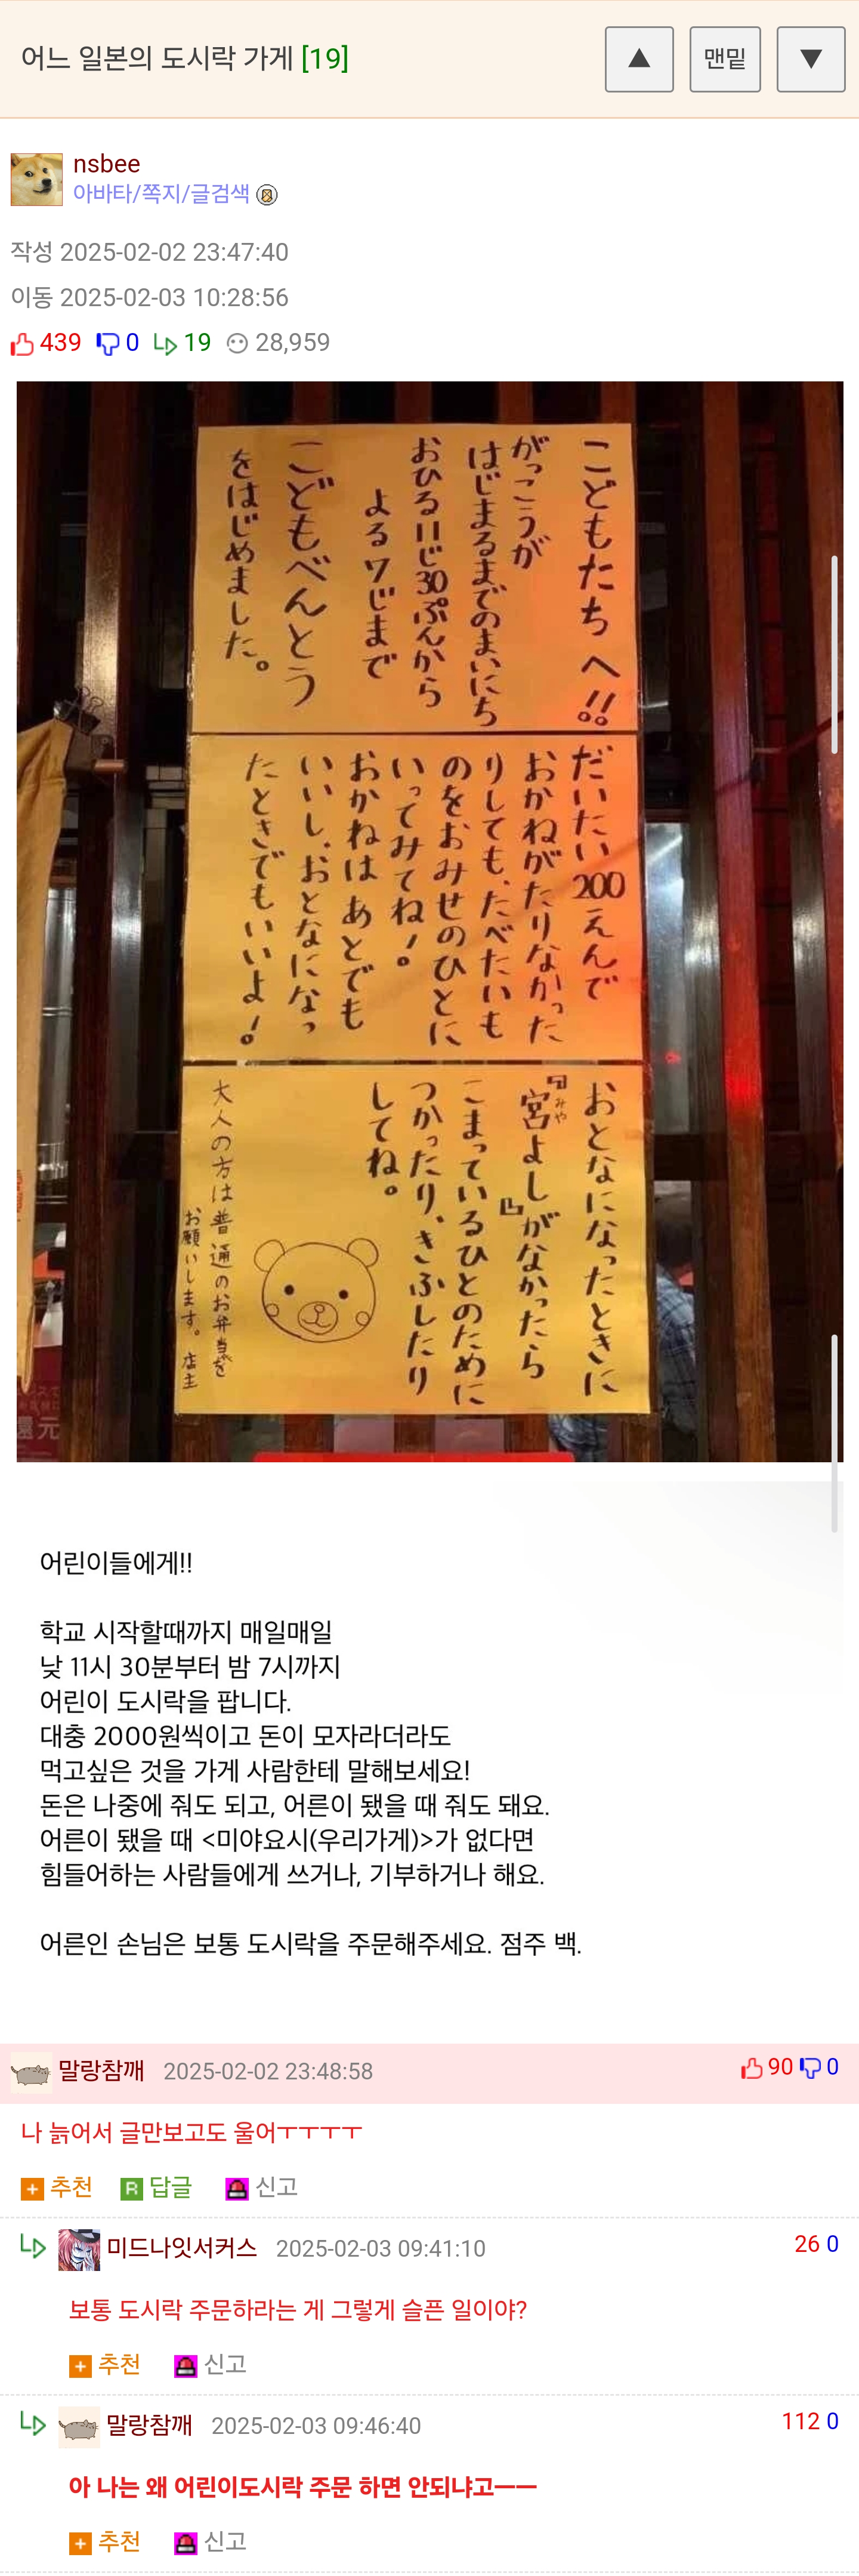 어느 일본의 도시락 가게 [19]
▲
맨밑
▼
nsbee
아바타/쪽지/글검색
작성 2025-02-02 23:47:40
이동 2025-02-03 10:28:56
439 0 19 28,959
こどもたちへ!!
がっこうが
はじまるまでのまいにち
おひる11じ30ぷんから
よる7じまで
こどもべんとう
をはじめました。
だいたい200えんで
おかねがたりなかった
りしても、たべたいも
のをおみせのひとに
いってみてね!
おかねはあとでも
いいし、おとなになっ
たときでもいいよ!
おとなになったときに
「宮よし」がなかったら
みや
こまっているひとのために
つかったり、きふしたり
してね。
大人の方は普通のお弁当を
お願いします。店主
還元
어린이들에게!!
학교 시작할때까지 매일매일
낮 11시 30분부터 밤 7시까지
어린이 도시락을 팝니다.
대충 2000원씩이고 돈이 모자라더라도
먹고싶은 것을 가게 사람한테 말해보세요!
돈은 나중에 줘도 되고, 어른이 됐을 때 줘도 돼요.
어른이 됐을 때 <미야요시(우리가게)>가 없다면
힘들어하는 사람들에게 쓰거나, 기부하거나 해요.
어른인 손님은 보통 도시락을 주문해주세요. 점주 백.
말랑참깨 2025-02-02 23:48:58 90 0
나 늙어서 글만보고도 울어ㅜㅜㅜㅜ
+ 추천 R 답글 신고
미드나잇서커스 2025-02-03 09:41:10 26 0
보통 도시락 주문하라는 게 그렇게 슬픈 일이야?
+ 추천 신고
말랑참깨 2025-02-03 09:46:40 112 0
아 나는 왜 어린이도시락 주문 하면 안되냐고ㅡㅡ
+ 추천 신고